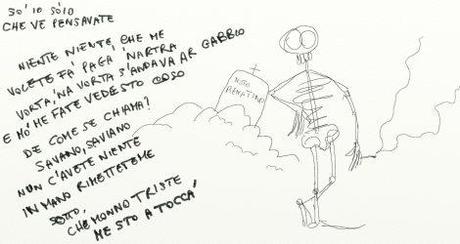 SO' IO SOLO
CHE VE PENSAVATE
NIENTE NIENTE, CHE ME
VOLETE FÀ PAGA 'NARTRA
VORTA, 'NA VORTA S'ANDAVA AR GABBIO
E MO' ME FATE VEDE STO COSO
DE COME SE CHIAMA?
SAVANO, SAVIANO
NUN C'AVETE NIENTE
IN MANO RIMETTETEME
SOTTO,
CHE MONNO TRISTE
ME STO A TOCCA'